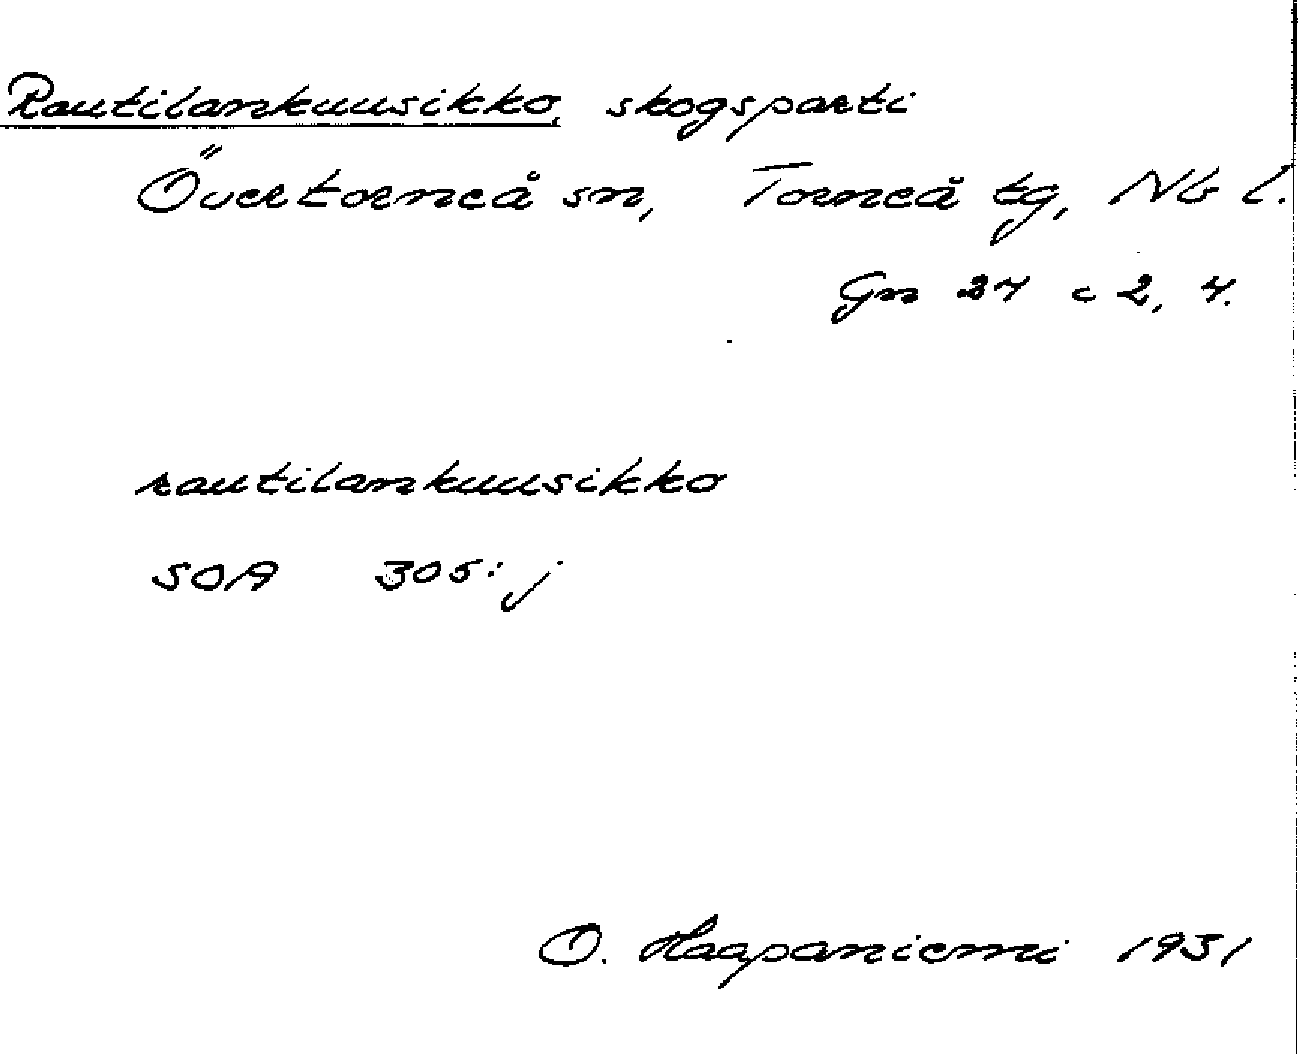 Rautilankuusikko, skogsparti
Övertorneå sn, Torneå tg, Nb l.
Gn 27 c 2, 4.
rautilankuusikko
SOA 305: j
O. Haapaniemi 1931